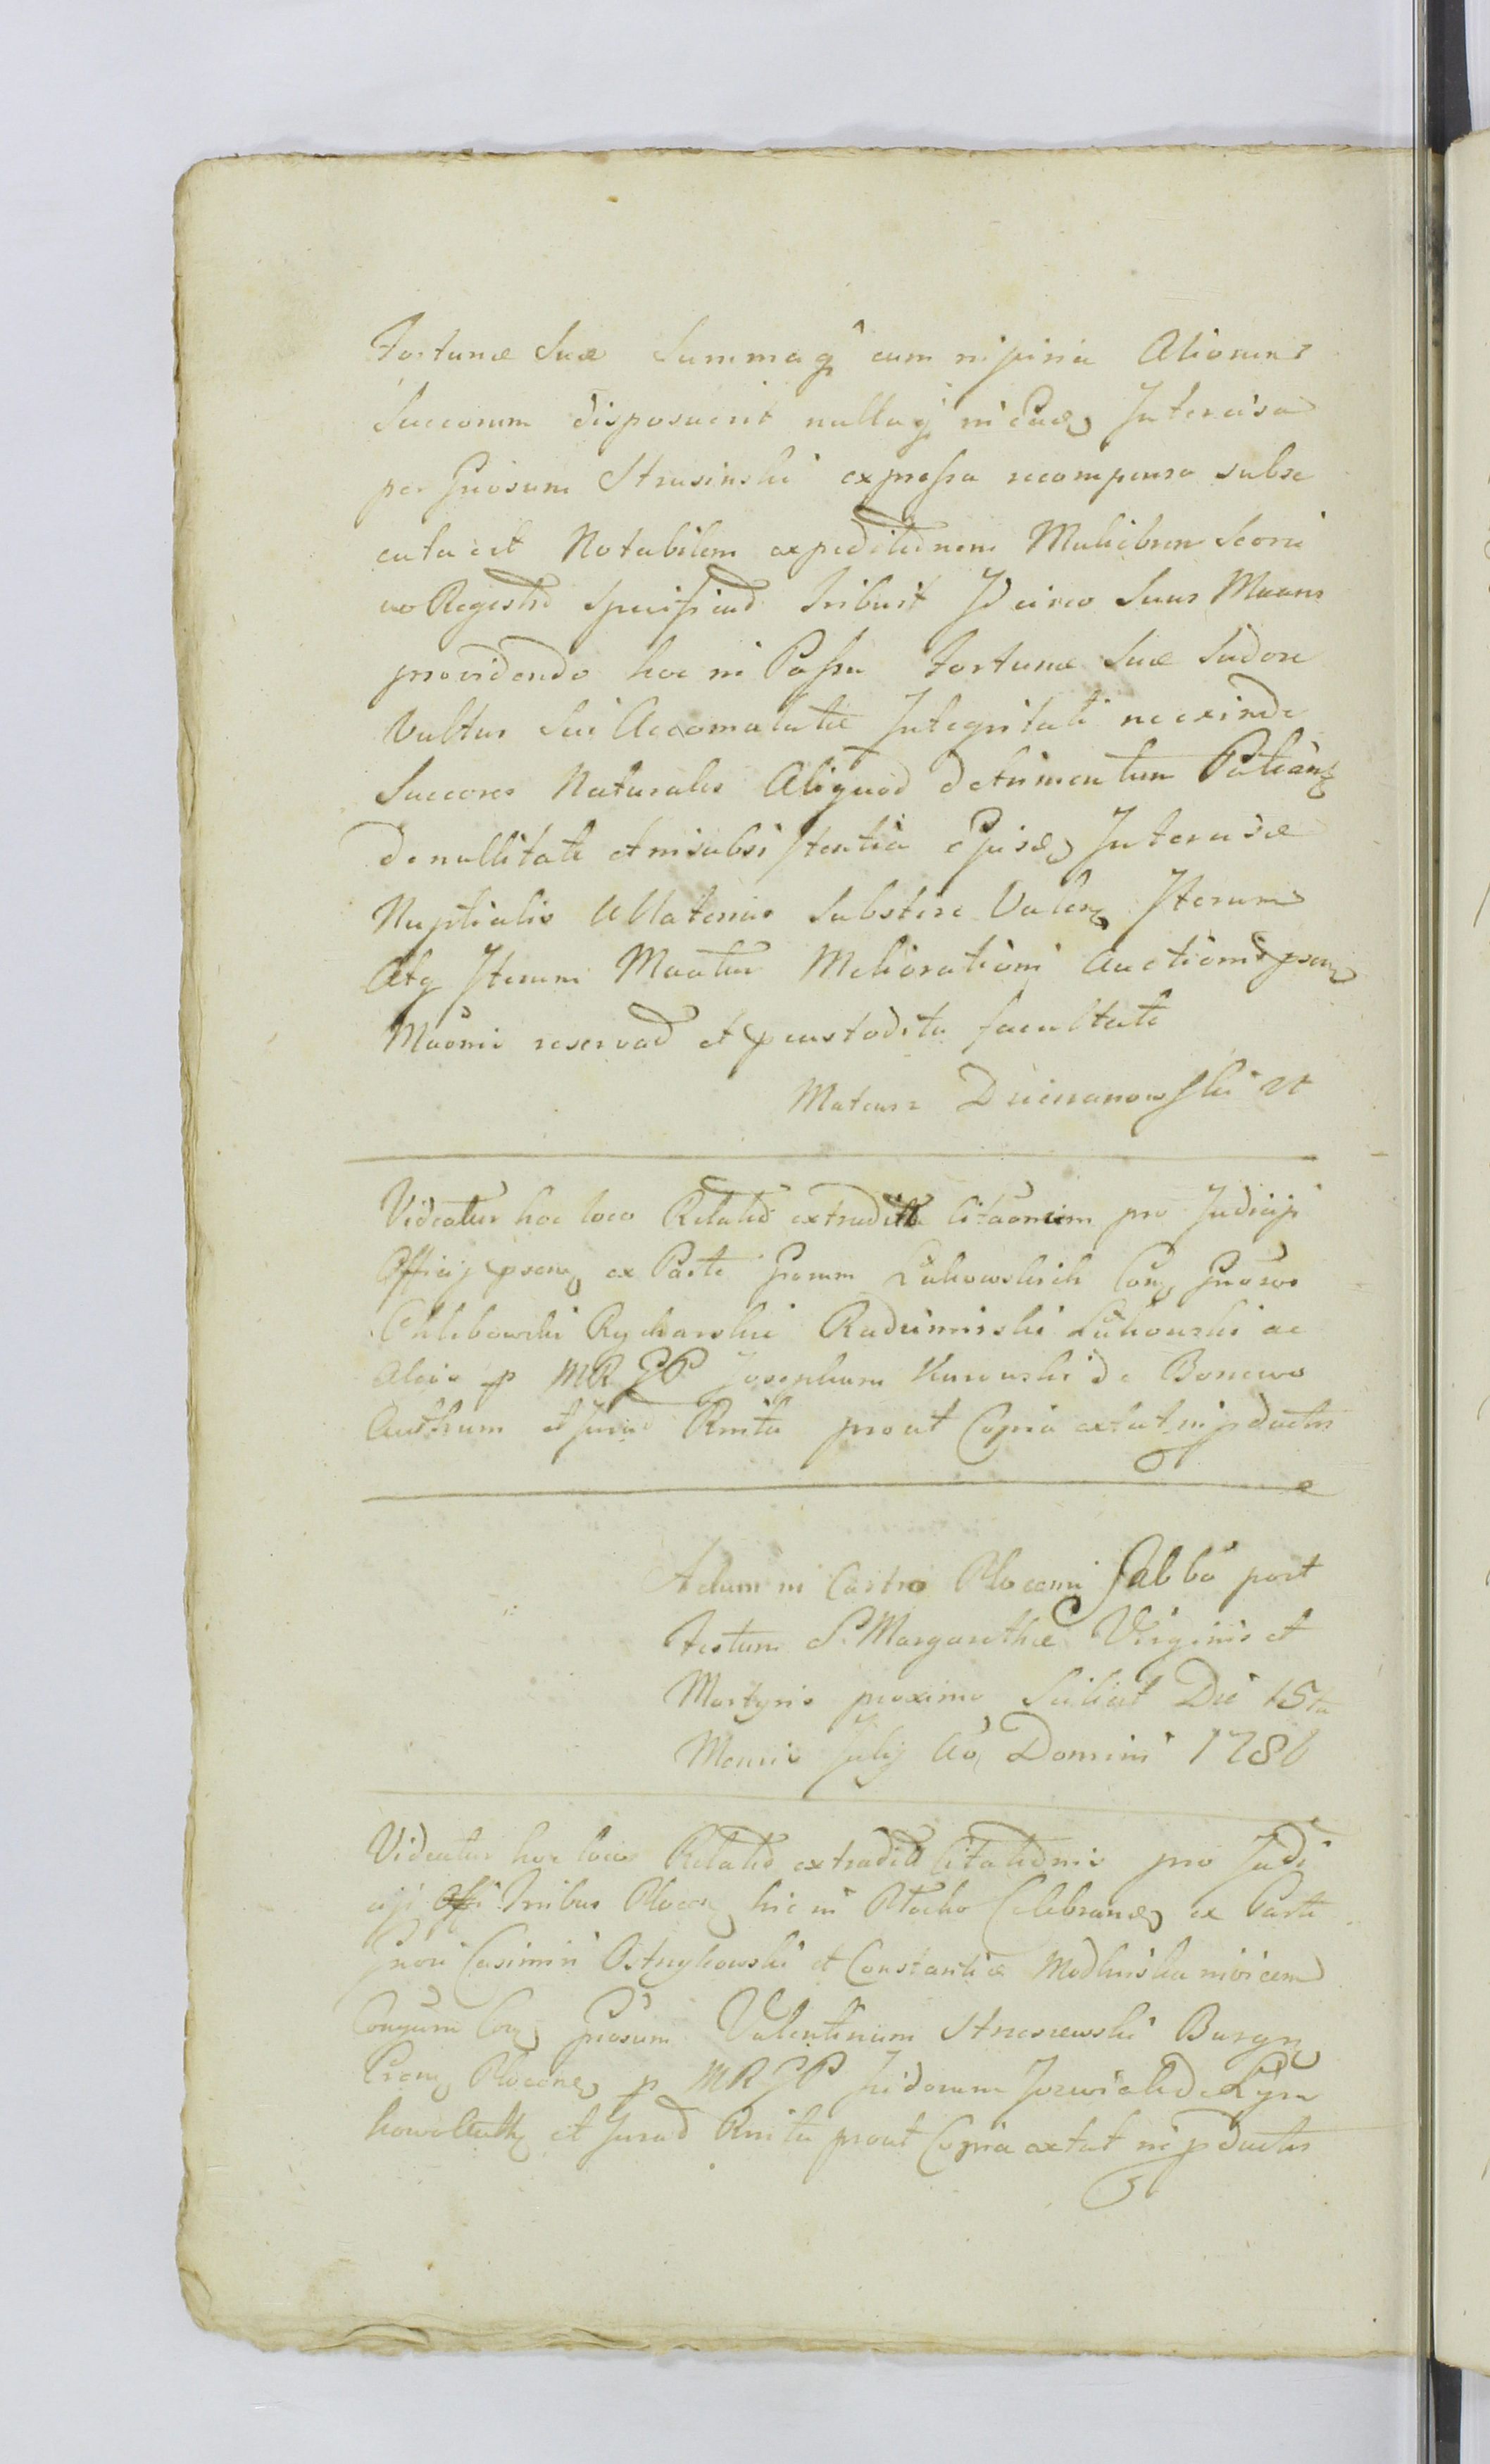 Fortunæ Suæ Summaq cum injuria Aliorum
Succorum disposuerit nullaq in Intercisa
per Gnosum Strusinski expressa recompensa subse
cuta est Notabilem expeditionem Muliebrem Seorsi
vo Regestro Specificad Tribuit Idcirco Suus Maans
providendo hoc in Passu Fortunæ Suæ Sudore
Vultus Sui Accomulatæ Integritati ne exinde
Succores Naturales Aliquod detrimentum Patiantr
de nullitate et insubsistentia Intercisæ
Nuptialis Ullatenus Substere Valen Iterum
Atq Iterum Maatur Meliorationi Auctioni psen
Maõni reservad et pcustodita facultate
Mateusz Dzierzanowski
Videatur hoc loco Relatio extradite Citaõnum pro Judicijs
Officij psen ex Parte Gnorum Łukowskich Con Gnosos
Chlebowski Rycharski Radzimiński Łukowski ac
Alios p MRGP Josephum Kurowski de Boniewo
Authum et Jurat Rnita prout Copia extat in pductis
Actum in Castro Plocensi Sabbo post
Festum S. Margarethæ Virginis et
Martyris proximo Scilicet Die 15ta
Mensis Julij Ao Domini 1786
Videatur hoc loco Relatio extradite Citationis pro Judi
cijs Tribus Plocen hic in Płocko Celebrand ex Parte
Gnor Casimiri Ostrykowski et Constantiæ Modlinska invicem
Congum Con Gnosum Valentinum Strzeszewski Burgr
Cren Plocens p MRGP Isidorum
Auth et Jurad Rnita prout Copia extat in pductis